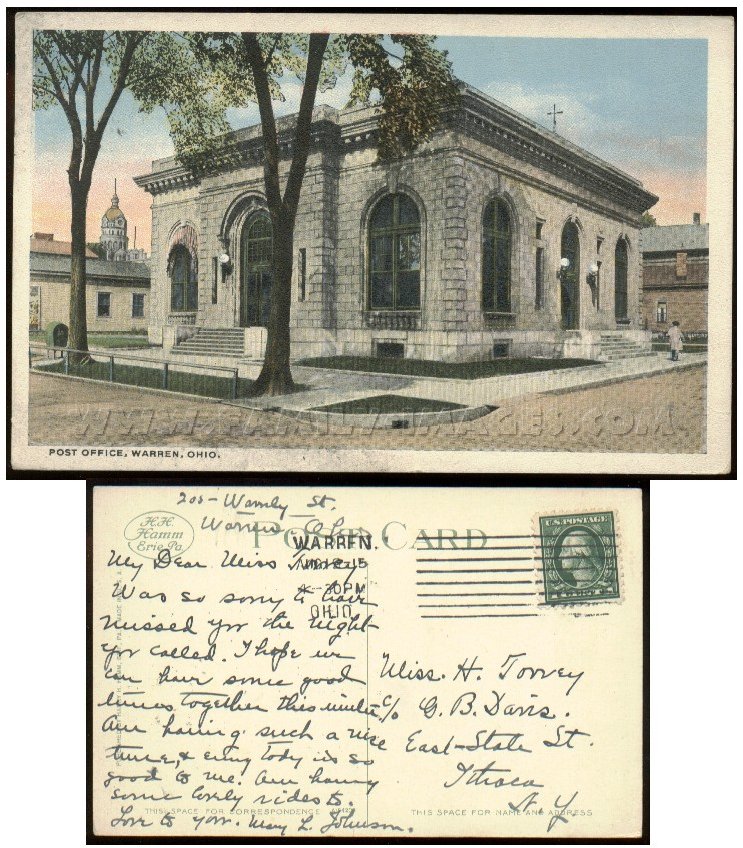 WWW.FAMILYIMAGES.COM
POST OFFICE, WARREN, OHIO.
200 - St.
Warren, O.
POST CARD
H.H.
Hamm
Erie, Pa.
WARREN.
AUG 12 15
30PM
OHIO
U.S. POSTAGE
My Dear Miss Torrey
Was so sorry to have
missed you the night
you called. I hope we
can have some good
times together this winter
Am having such a nice
time, & every body is so
good to me. Am having
some lovely rides to.
Love to you. Mary L. Johnson.
Miss. H. Torrey
c/o G. B. Davis.
East-State St.
Ithaca
N.Y.
THIS SPACE FOR CORRESPONDENCE
THIS SPACE FOR NAME AND ADDRESS